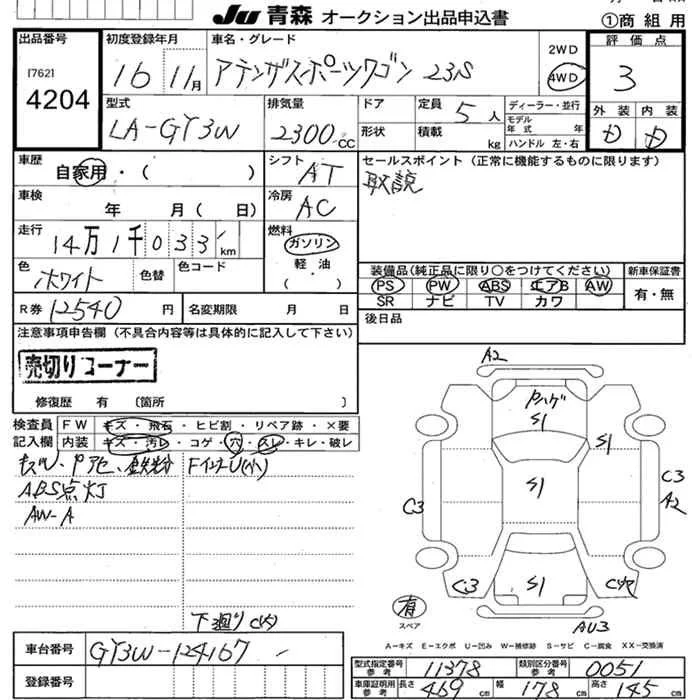 JU 青森 オークション出品申込書
①商 組 用
出品番号
[762]
4204
初度登録年月
16 11月
車名・グレード
アテンザスポーツワゴン 23S
2WD
4WD
評 価 点
3
型式
LA-GY3W
排気量
2300 CC
ドア
形状
定員 5 人
積載 kg
ディーラー・並行
モデル年式 年
ハンドル 左・右
外 装
内 装
車歴
自家用・( )
シフト AT
セールスポイント（正常に機能するものに限ります）
取説
車検
年 月( 日)
冷房 AC
走行
14万1千033 km
燃料
ガソリン
軽・油
( )
色
ホワイト
色替
色コード
装備品(純正品に限り○をつけてください)
PS PW ABS エアB AW
SR ナビ TV カワ
新車保証書
有・無
R券 12540 円
名変期限 月 日
後日品
注意事項申告欄 (不具合内容等は具体的に記入して下さい)
売切りコーナー
修復歴 有 〔箇所 〕
検査員
記入欄
FW キズ・飛石・ヒビ割・リペア跡・×要
内装 キズ・汚レ・コゲ・穴・スレ・キレ・破レ
キズU、Pアセ、鉄粉
FインナーU(小)
ABS点灯
AW-A
下廻りC(大)
A2
Pハゲ
S1
S1
S1
S1
C3
C3
A2
C3
AU3
有
スペア
A－キズ E－エクボ U－凹み W－補修跡 S－サビ C－腐食 XX－交換済
車台番号
GY3W-124167
登録番号
型式指定番号
参考
11378
類別区分番号
参考
0051
車庫証明用
参考
長さ 469 cm
幅 178 cm
高さ 145 cm